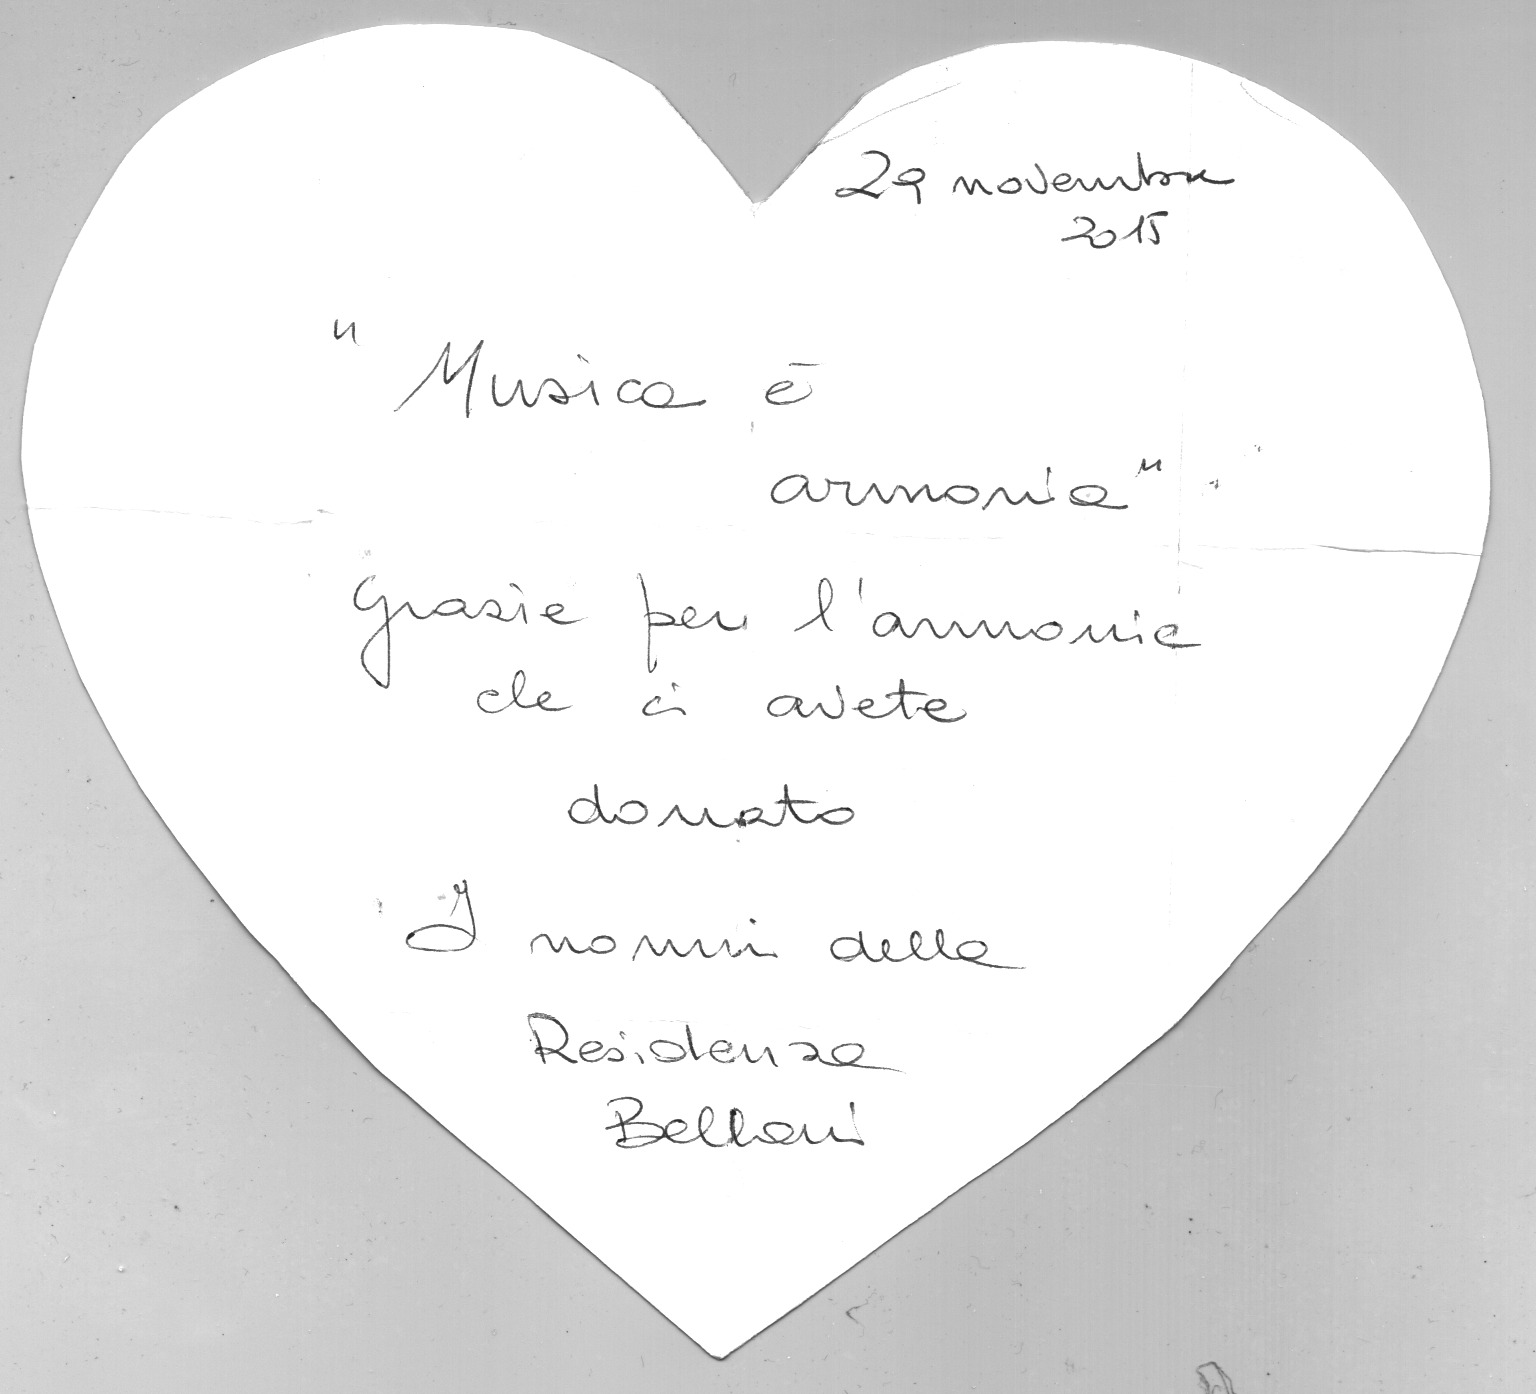 29 novembre
2015
"Musica è
armonia"
Grazie per l'armonia
che ci avete
donato
I nonni della
Residenza
Belloni